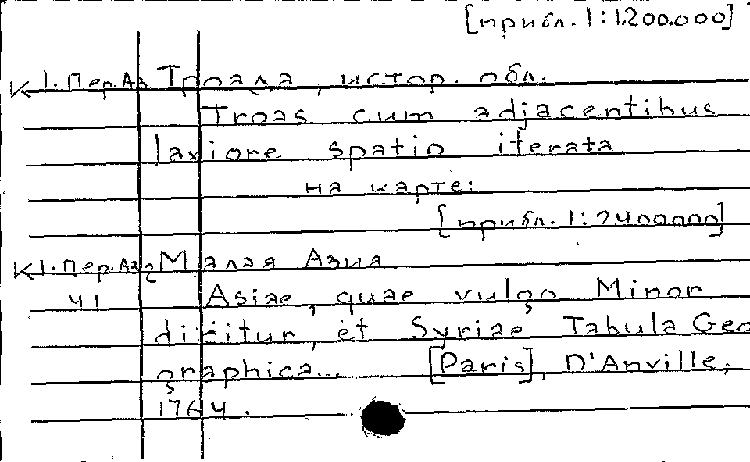 [прибл. 1:1200.000]
К 1. Пер.Аз Троада, истор. обл.
Troas cum adjacentibus
laxiore spatio iterata
на карте:
[прибл. 1:2400000]
К 1. Пер.Аз Малая Азия
41 Asiae, quae vulgo Minor
dicitur, et Syriae Tabula Geo
graphica... [Paris], D'Anville,
1764.